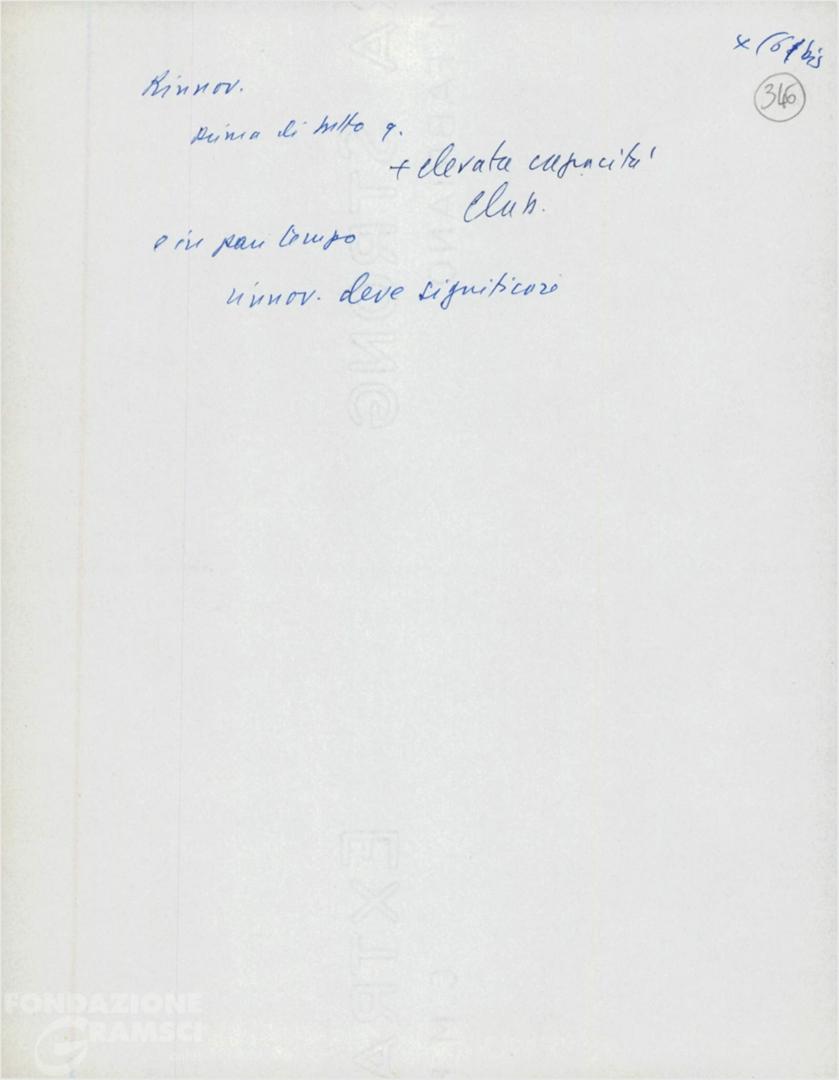 x (61 bis
346
Rinnov.
prima di tutto q.
+ elevata capacità
elab.
e in pari tempo
rinnov. deve significare
EXTRA STRONG
FONDAZIONE
GRAMSCI